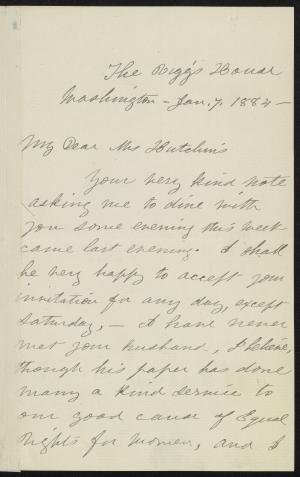 The Riggs House
Washington - Jan. 7. 1884 -
My Dear Mrs Hutchins
Your very kind note
asking me to dine with
you some evening this week
came last evening. I shall
be very happy to accept your
invitation for any day, except
Saturday, - I have never
met your husband, I believe,
though his paper has done
many a kind service to
our good cause of Equal
rights for women, and I